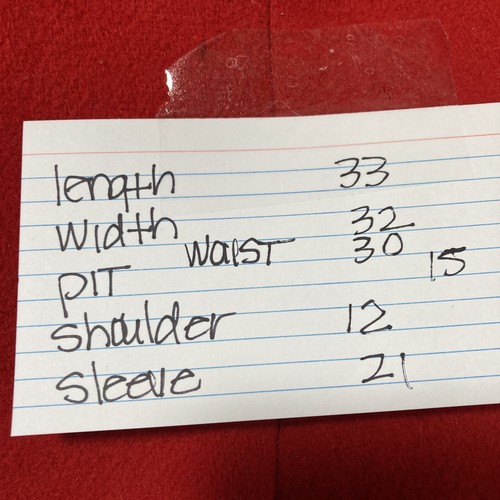 length 33
width 32
waist 30
pit 15
shoulder 12
sleeve 21